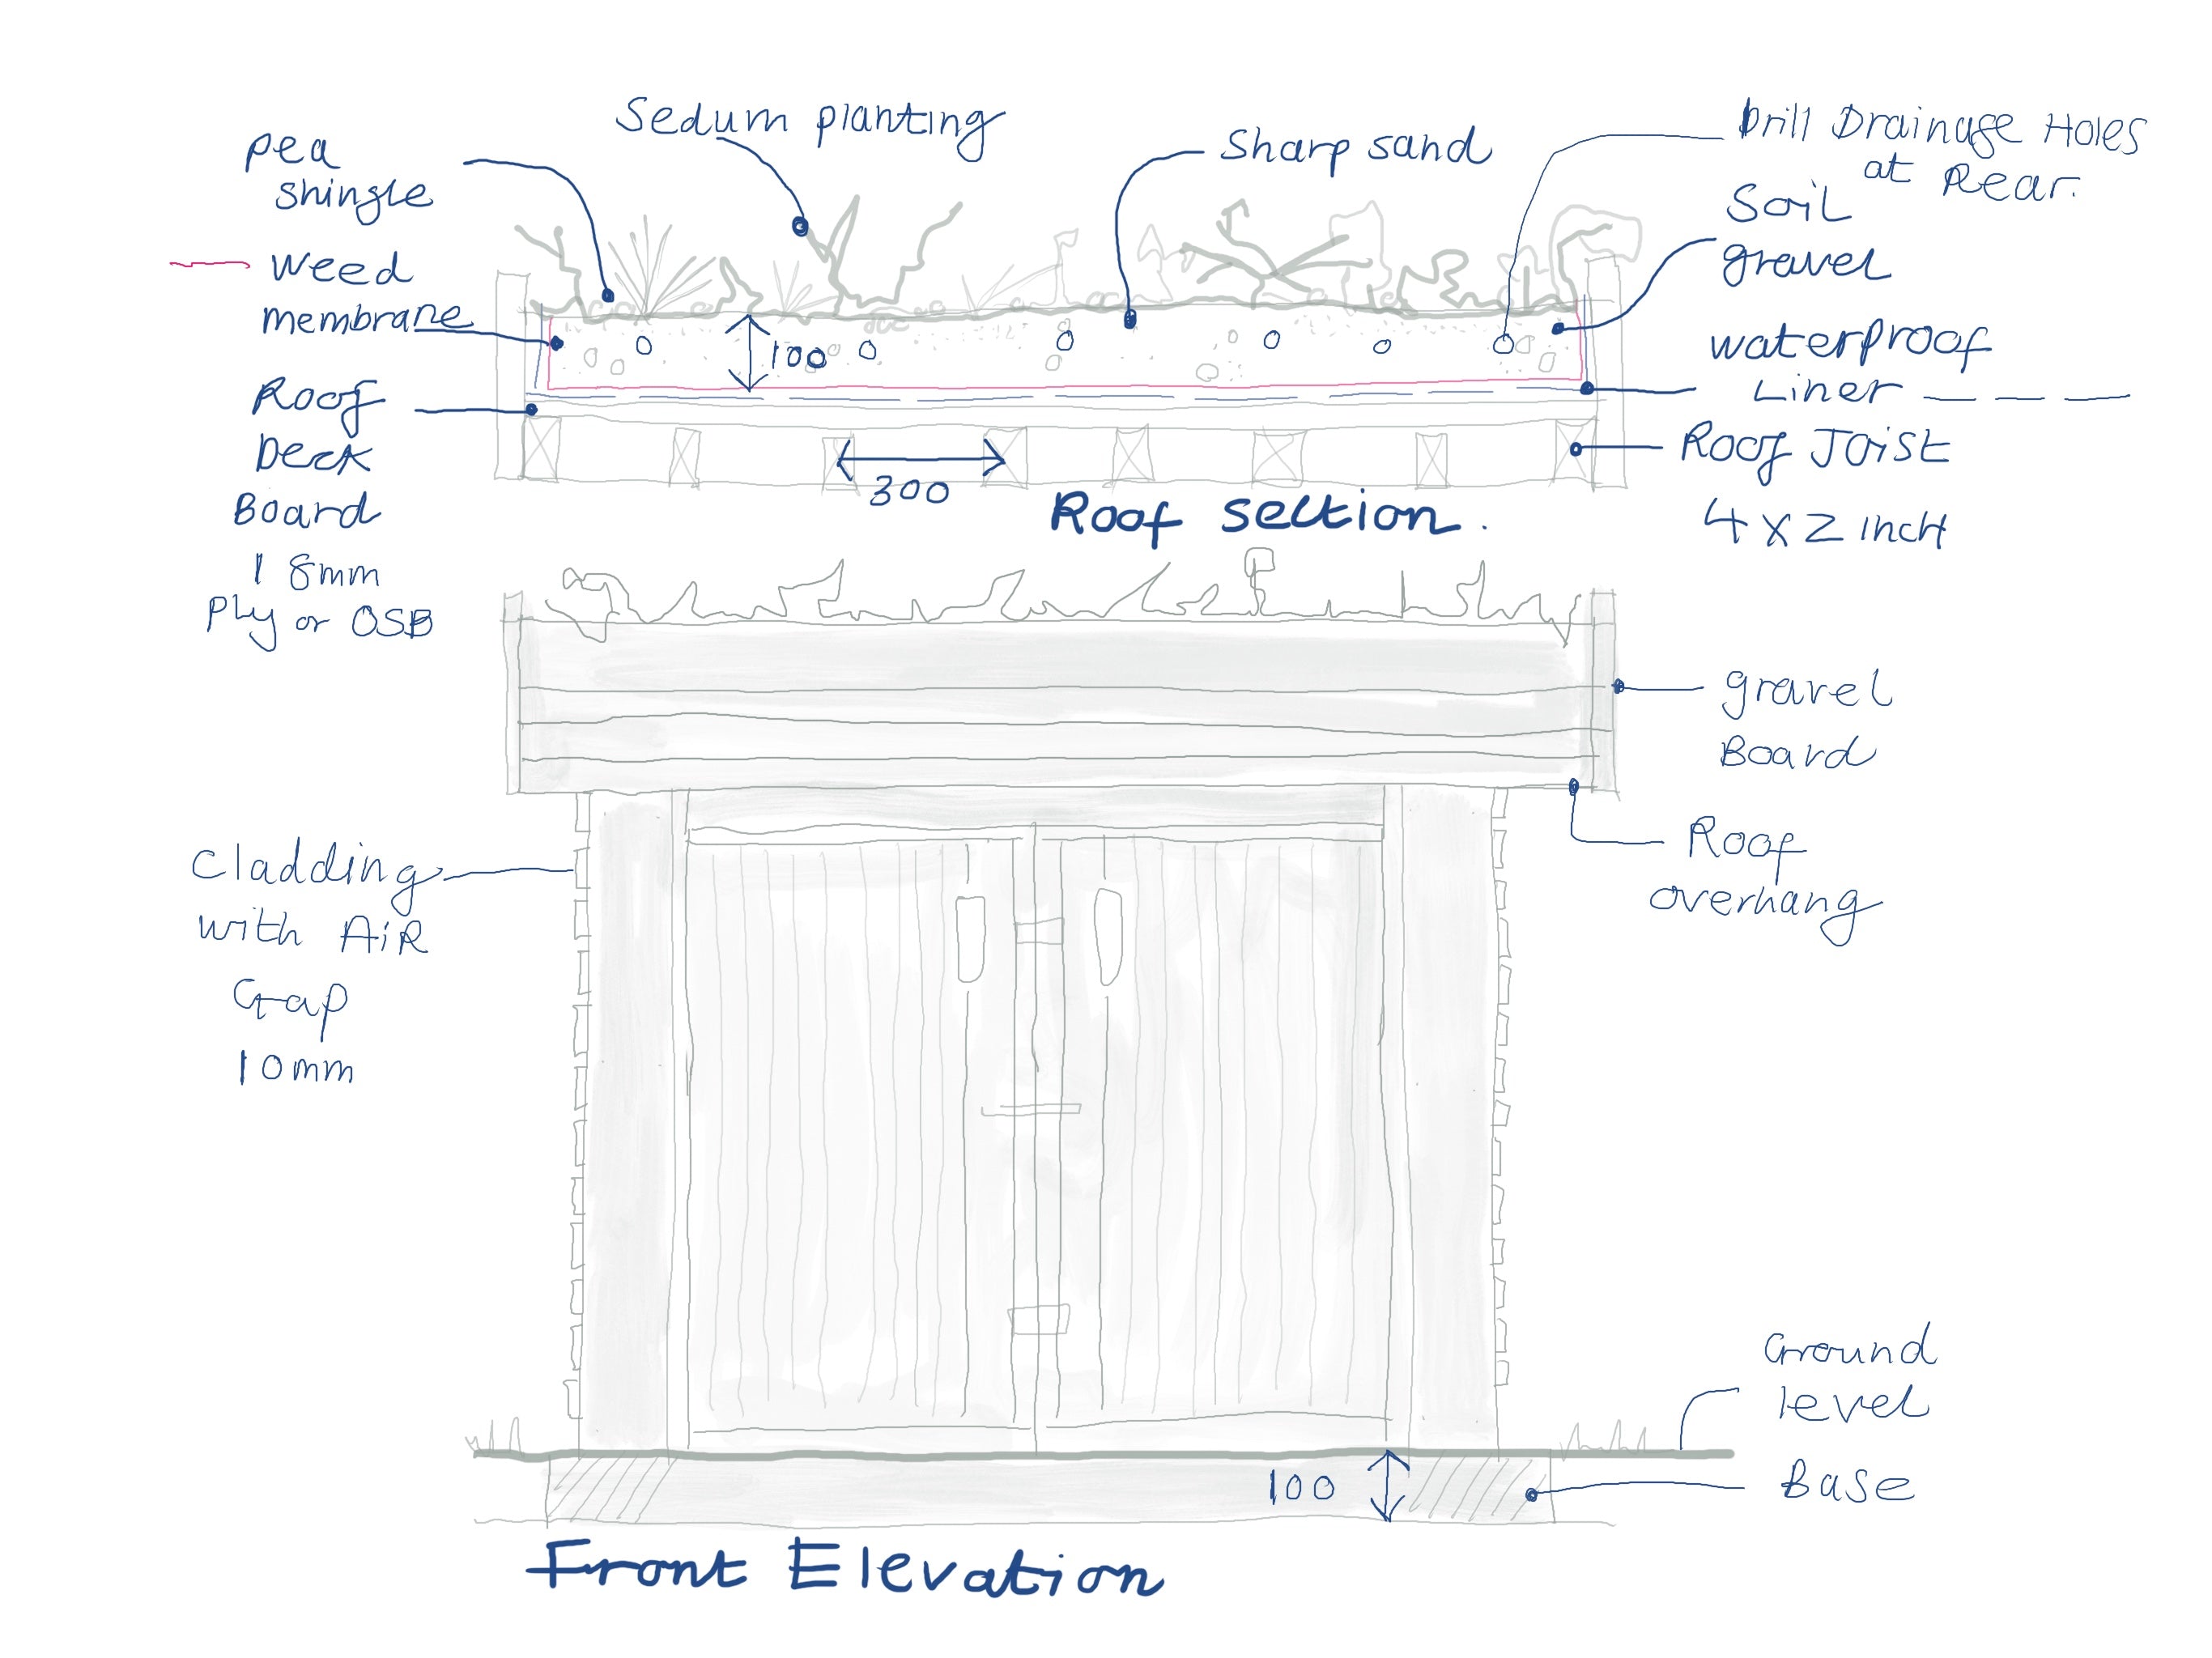 Sedum planting
pea
shingle
Sharp sand
Drill Drainage Holes
at Rear.
Soil
gravel
weed
membrane
100
waterproof
Liner
Roof
Deck
Board
18mm
Ply or OSB
300
Roof Joist
4 x 2 inch
Roof section.
gravel
Board
Roof
overhang
Cladding
with AiR
Gap
10mm
Ground
level
100
Base
Front Elevation